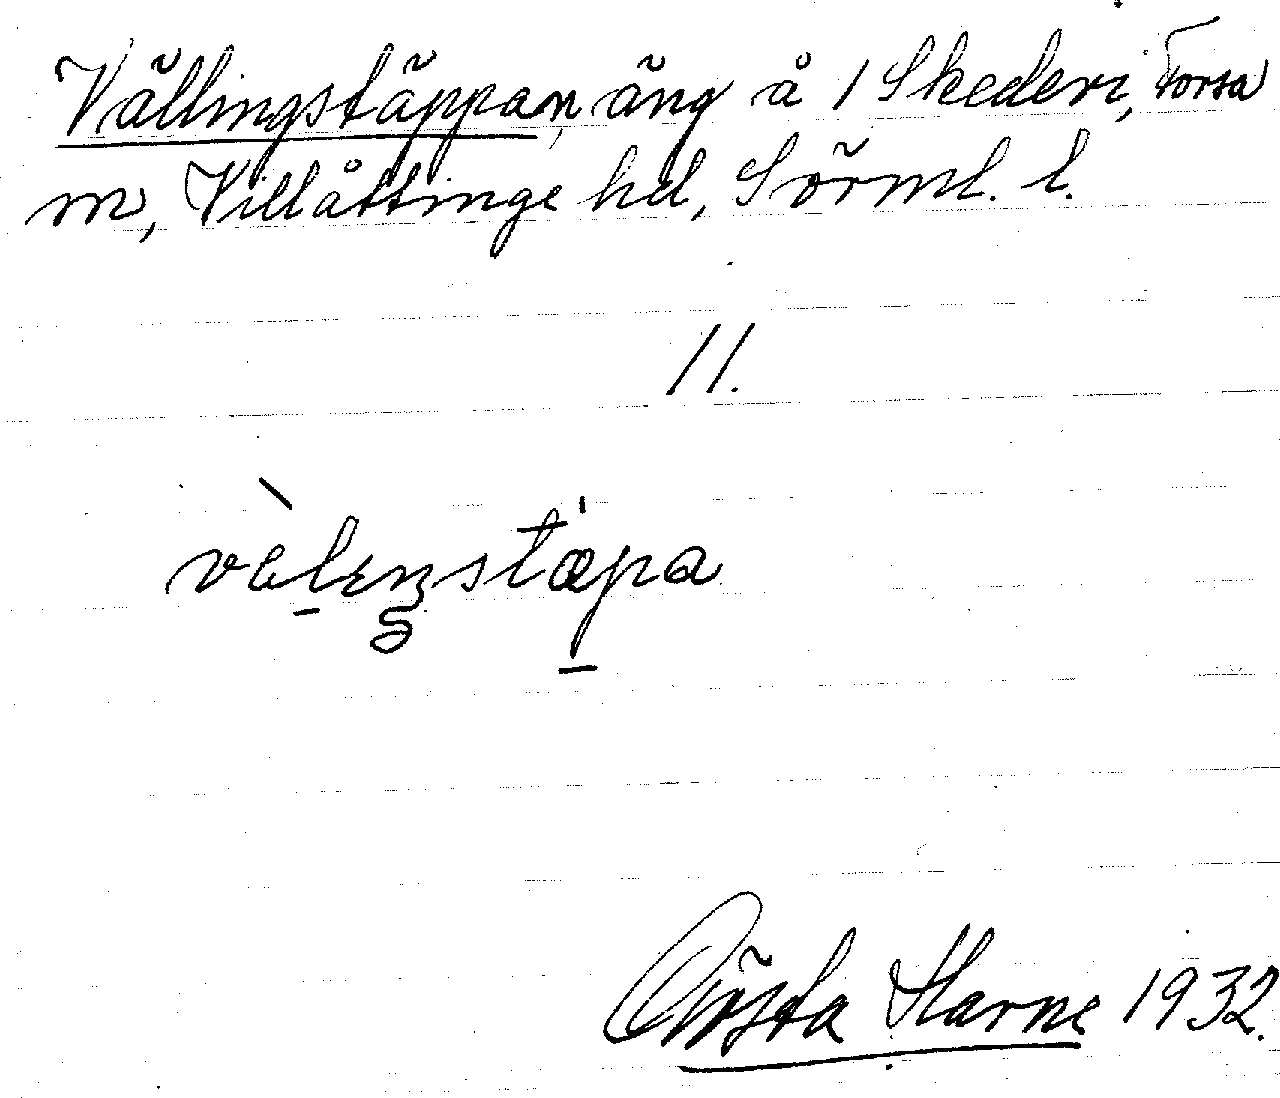 Vällingstäppan, äng å 1 Skederi, Torsa
sn, Villåttinge hd, Sörml. l.
11.
vèlɩŋstæ̍pa
Gösta Harne 1932.